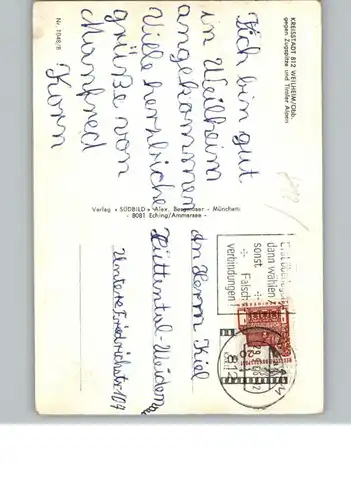 KREISSTADT 812 WEILHEIM/Obb.
gegen Zugspitze und Tiroler Alpen
Ich bin gut
in Weilheim
angekommen
Viele herzliche
grüße von
Manfred
Korn
Nr. 1048/8
Verlag «SÜDBILD» Alex. Bengsohn - München
- 8081 Eching/Ammersee -
dann wählen!
sonst
Falsch
verbindungen!
812
An Herrn Kiel
Hüttental-Weidenau
Untere Friedrichstr. 109